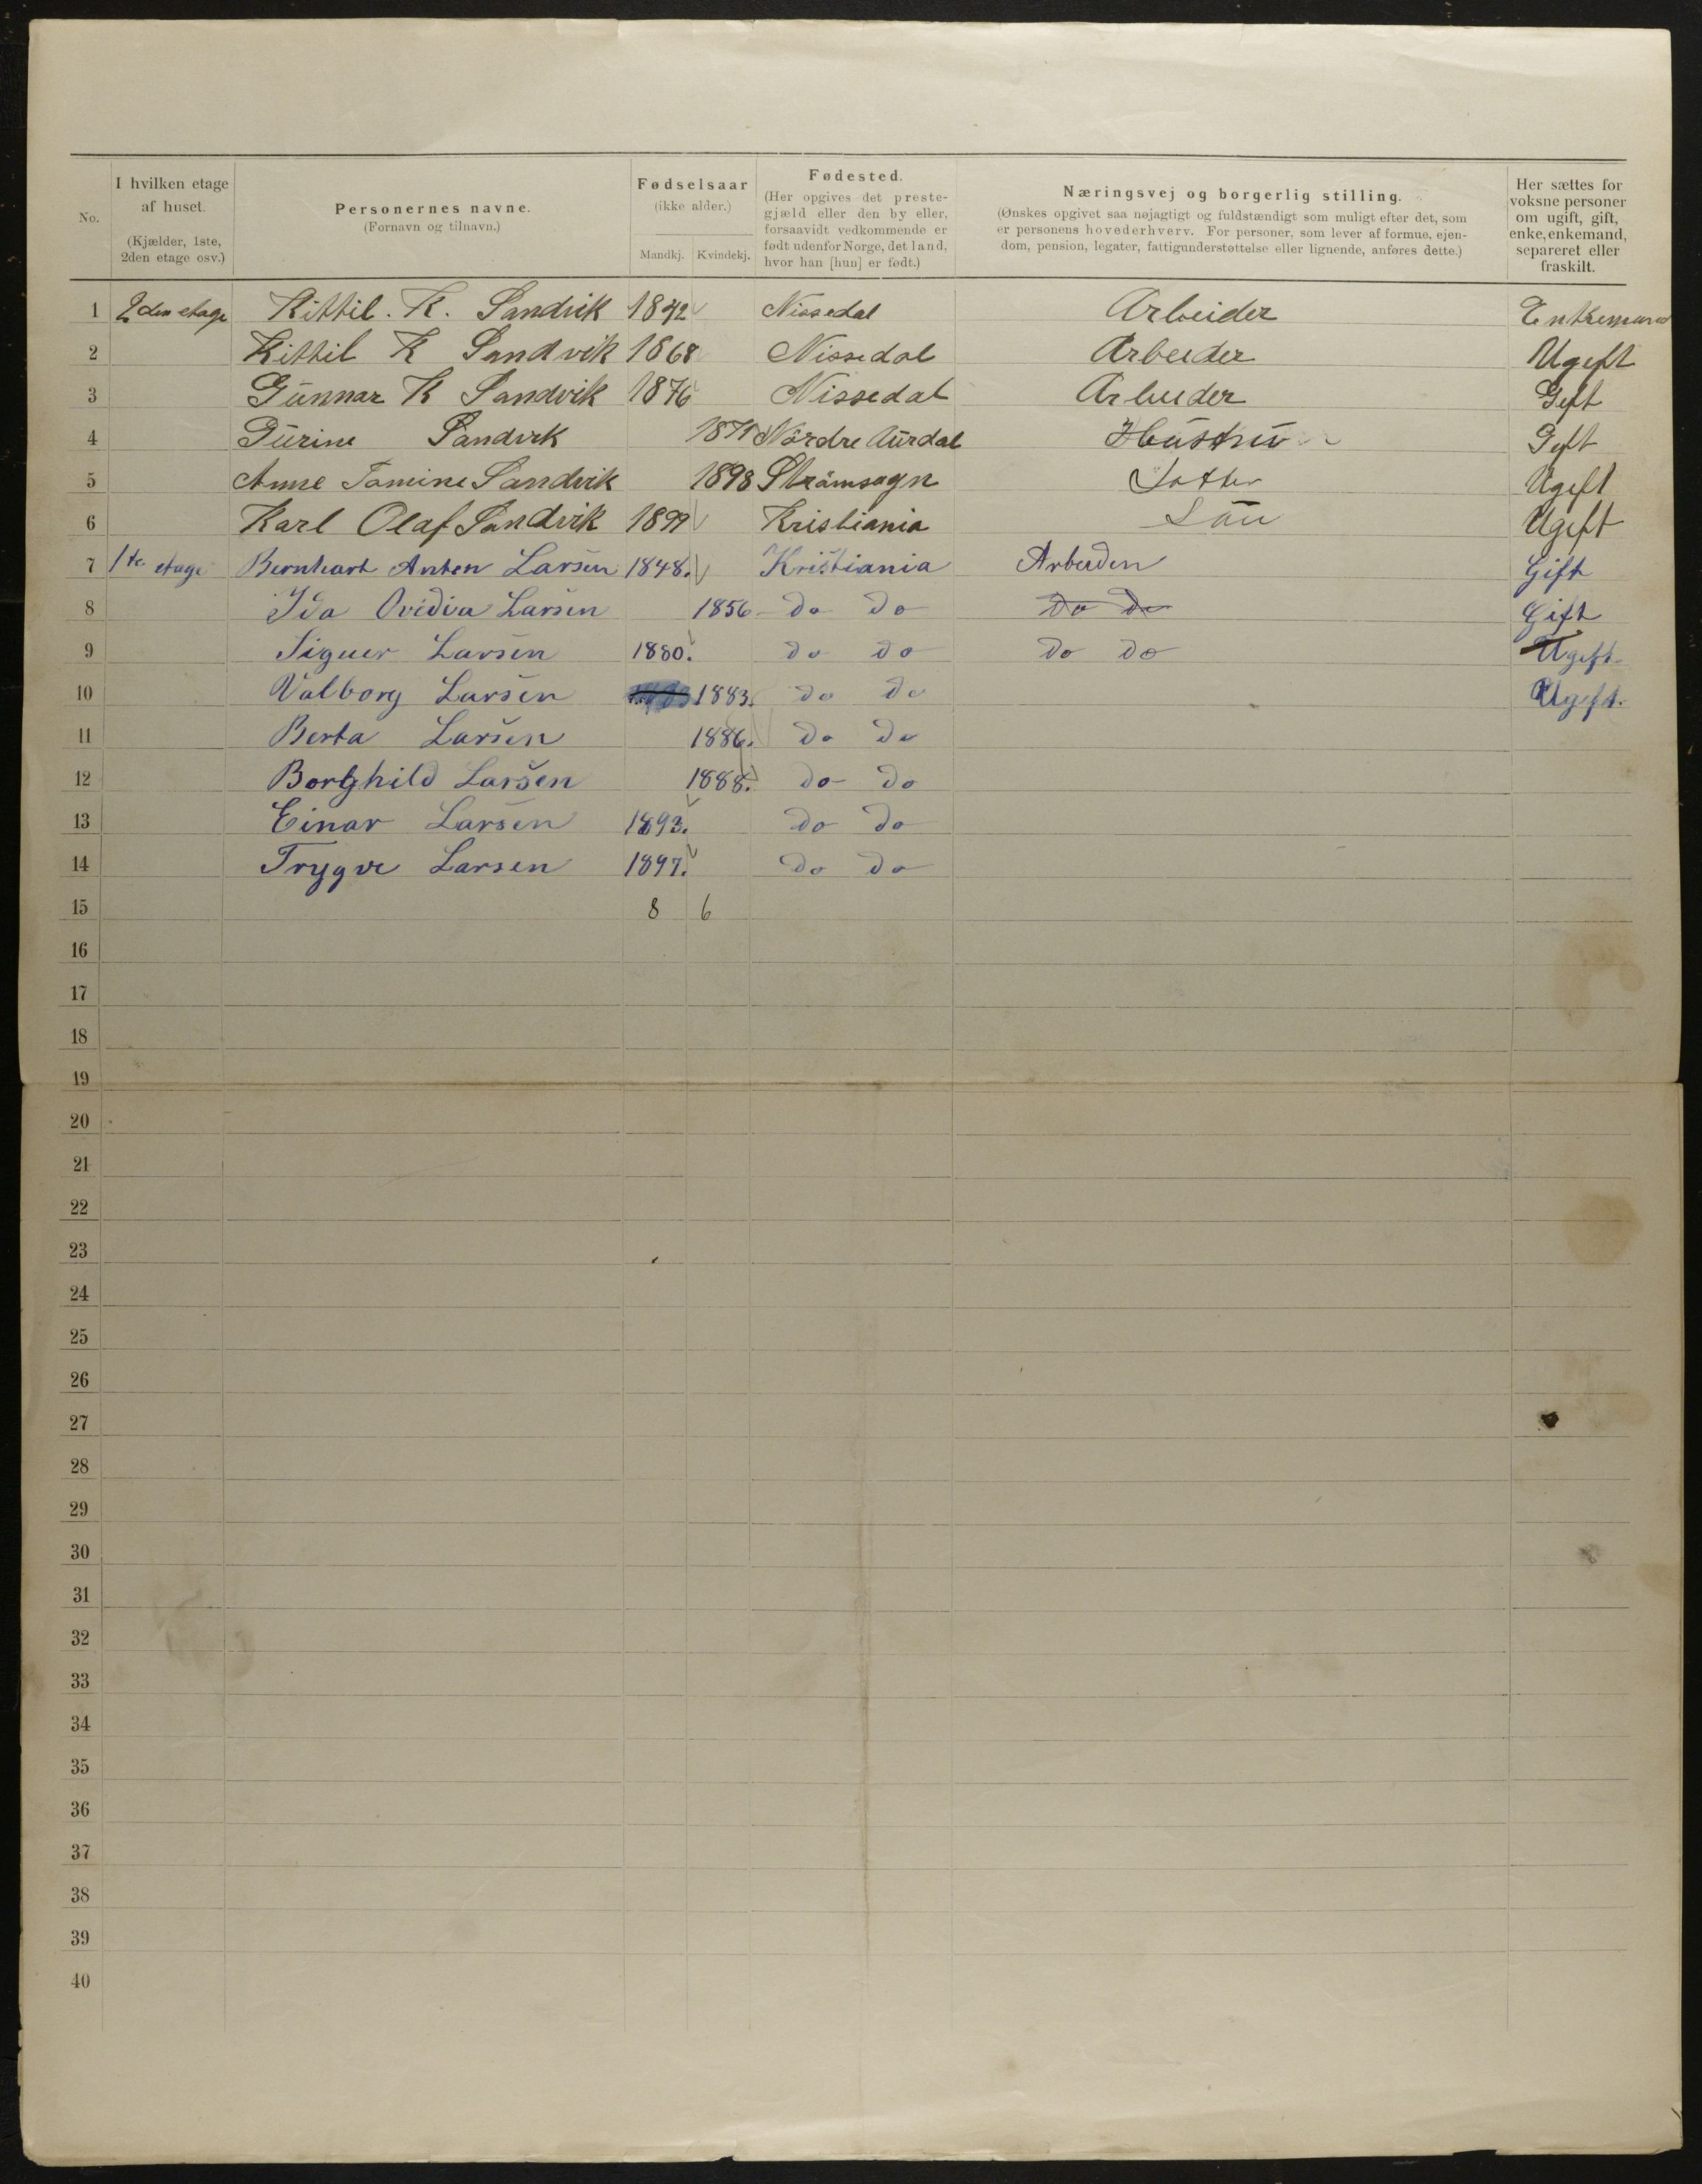 No. | I hvilken etage af huset. (Kjælder, 1ste, 2den etage osv.) | Personernes navne. (Fornavn og tilnavn.) | Fødselsaar (ikke alder.) Mandkj. Kvindekj. | Fødested. (Her opgives det prestegjæld eller den by eller, forsaavidt vedkommende er født udenfor Norge, det land, hvor han [hun] er født.) | Næringsvej og borgerlig stilling. (Ønskes opgivet saa nøjagtigt og fuldstændigt som muligt efter det, som er personens hovederhverv. For personer, som lever af formue, ejendom, pension, legater, fattigunderstøttelse eller lignende, anføres dette.) | Her sættes for voksne personer om ugift, gift, enke, enkemand, separeret eller fraskilt.
1 2den etage Kittil. K. Sandvik 1842 Nissedal Arbeider Enkemand
2 Kittil K Sandvik 1868 Nissedal Arbeider Ugift
3 Gunnar K Sandvik 1876 Nissedal Arbeider Gift
4 Gurine Sandvik Nordre Aurdal Hustru Gift
5 Anne Tomine Sandvik 1898 Strömsogn Dotter Ugift
6 Karl Olaf Sandvik 1899 Kristiania Sön Ugift
7 1te etage Bernhart Anton Larsen 1848. Kristiania Arbeider Gift
8 Ida Ovidia Larsen 1856 do do do do Gift
9 Larsen 1880. do do do do Ugift
10 Valborg Larsen 1883. do do Ugift.
11 Berta Larsen 1886. do do
12 Borghild Larsen 1888. do do
13 Einar Larsen 1893. do do
14 Trygve Larsen 1897. do do
15 8 6
16
17
18
19
20
21
22
23
24
25
26
27
28
29
30
31
32
33
34
35
36
37
38
39
40